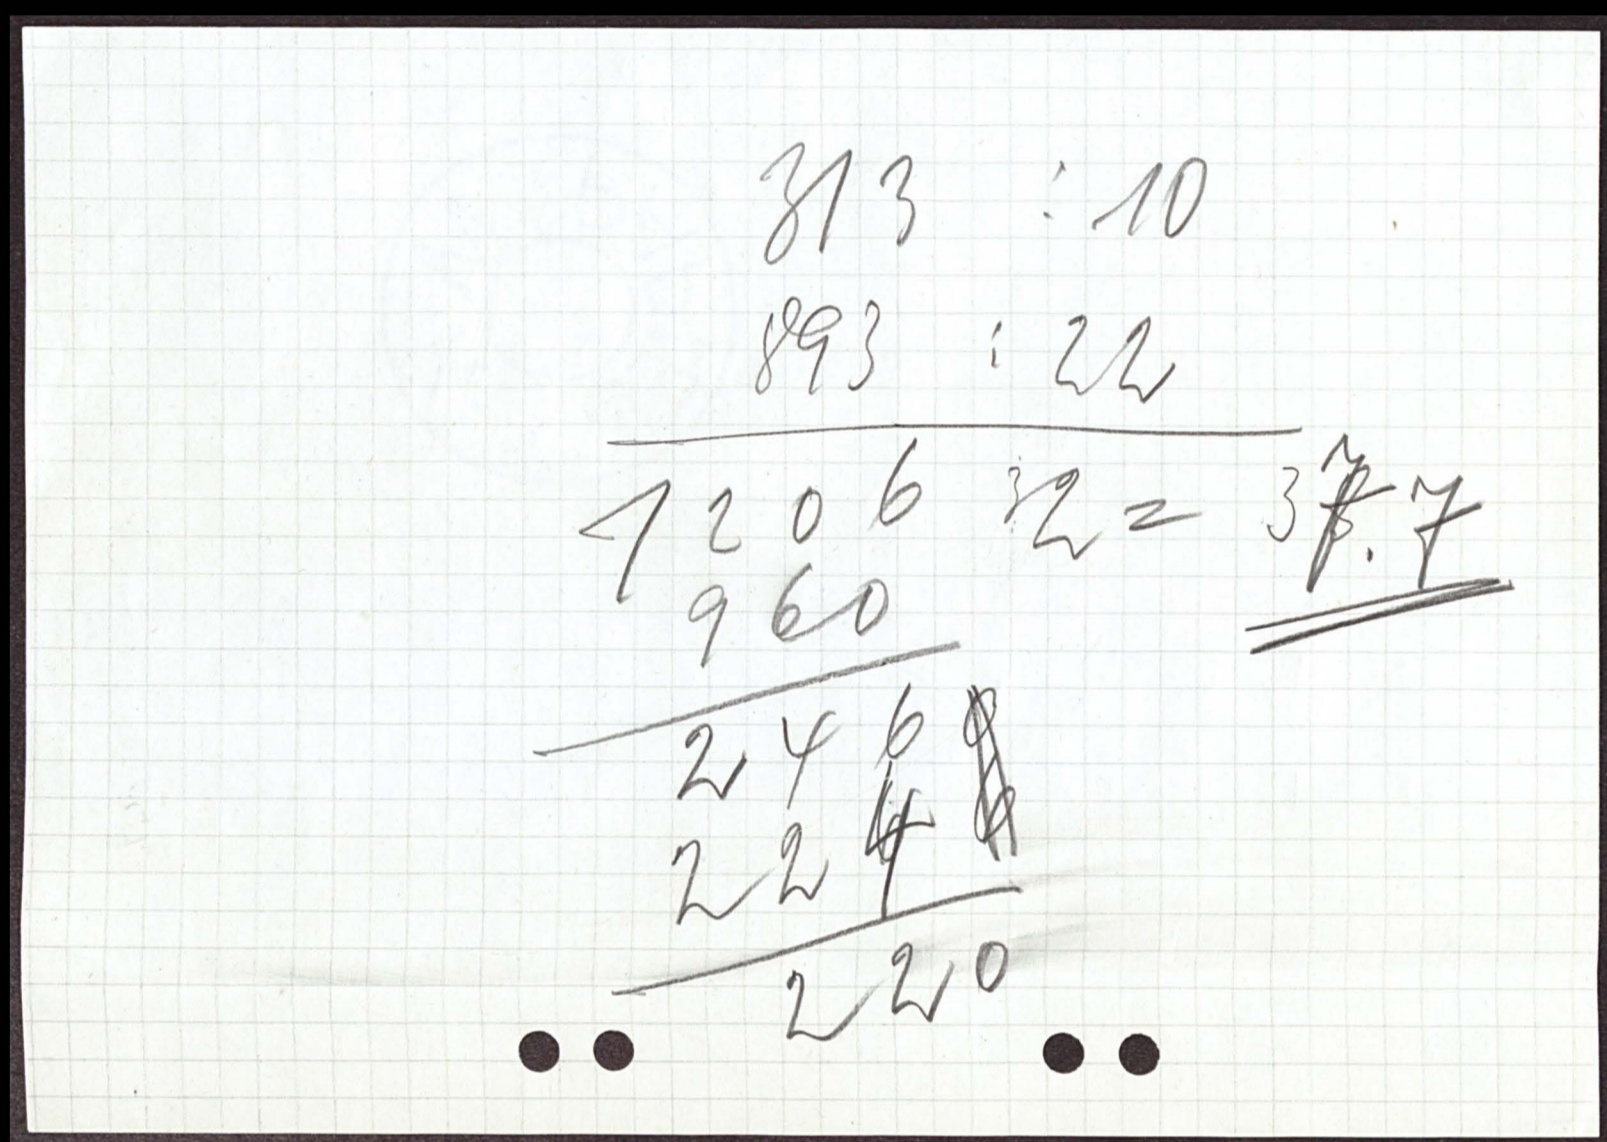 313 : 10
893 : 22
1206 32 = 37.7
960
246
224
220